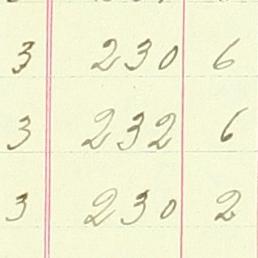 3 230 6
3 232 6
3 230 2